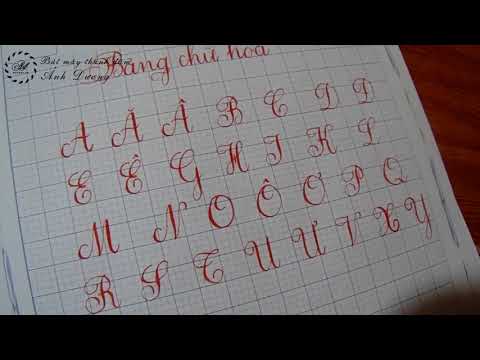 Bút máy thanh đậm
Ánh Dương
Bảng chữ hoa
A Ă Â B C D Đ
E Ê G H I K L
M N O Ô Ơ P Q
R S T U Ư V X Y